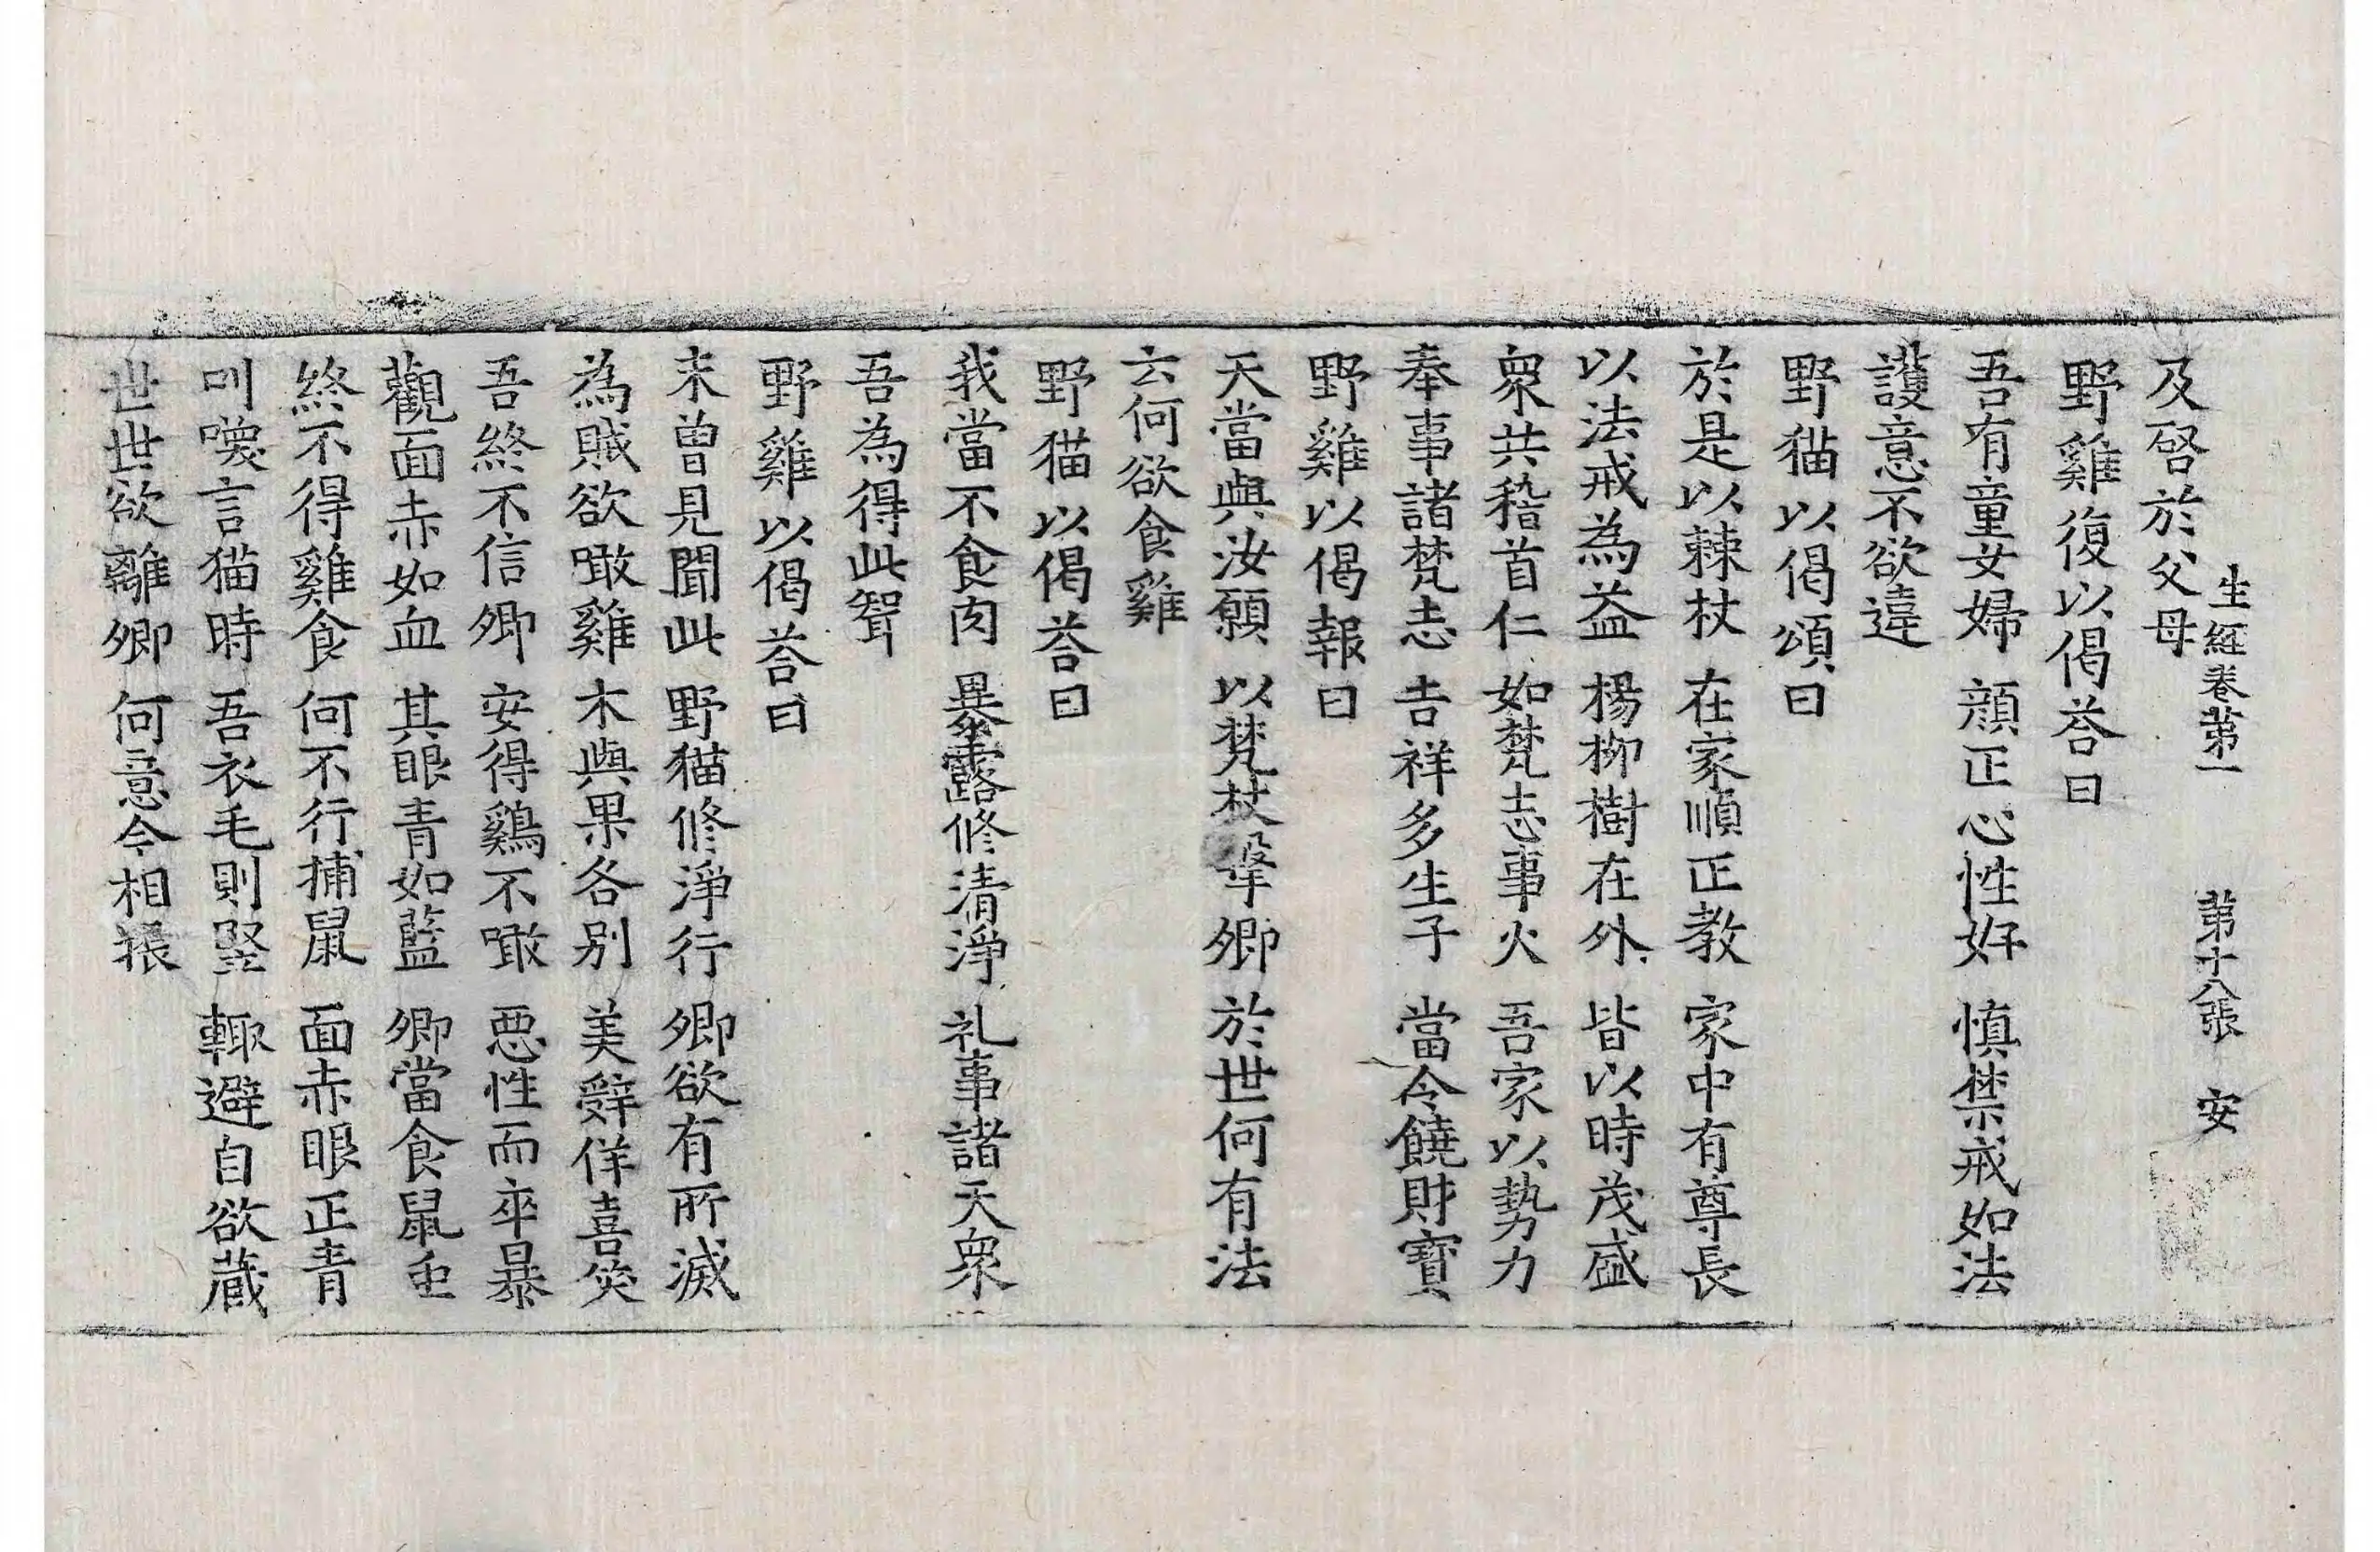 生經卷第一　第十八張　安
及啓於父母
野雞復以偈荅曰
吾有童女婦　顔正心性好　慎禁戒如法
護意不欲違
野猫以偈頌曰
於是以棘杖　在家順正教　家中有尊長
以法戒為益　楊柳樹在外　皆以時茂盛
衆共稽首仁　如梵志事火　吾家以勢力
奉事諸梵志　吉祥多生子　當令饒財寶
野雞以偈報曰
天當與汝願　以梵杖擊卿　於世何有法
云何欲食雞
野猫以偈荅曰
我當不食肉　暴露修清淨　礼事諸天衆
吾為得此聟
野雞以偈荅曰
未曾見聞此　野猫修淨行　卿欲有所滅
為賊欲噉雞　木與果各别　美辭佯喜笑
吾終不信卿　安得鷄不噉　惡性而卒暴
觀面赤如血　其眼青如藍　卿當食鼠虫
終不得雞食　何不行捕鼠　面赤眼正青
叫喚言猫時　吾衣毛則竪　輙避自欲蔵
世世欲離卿　何意今相振